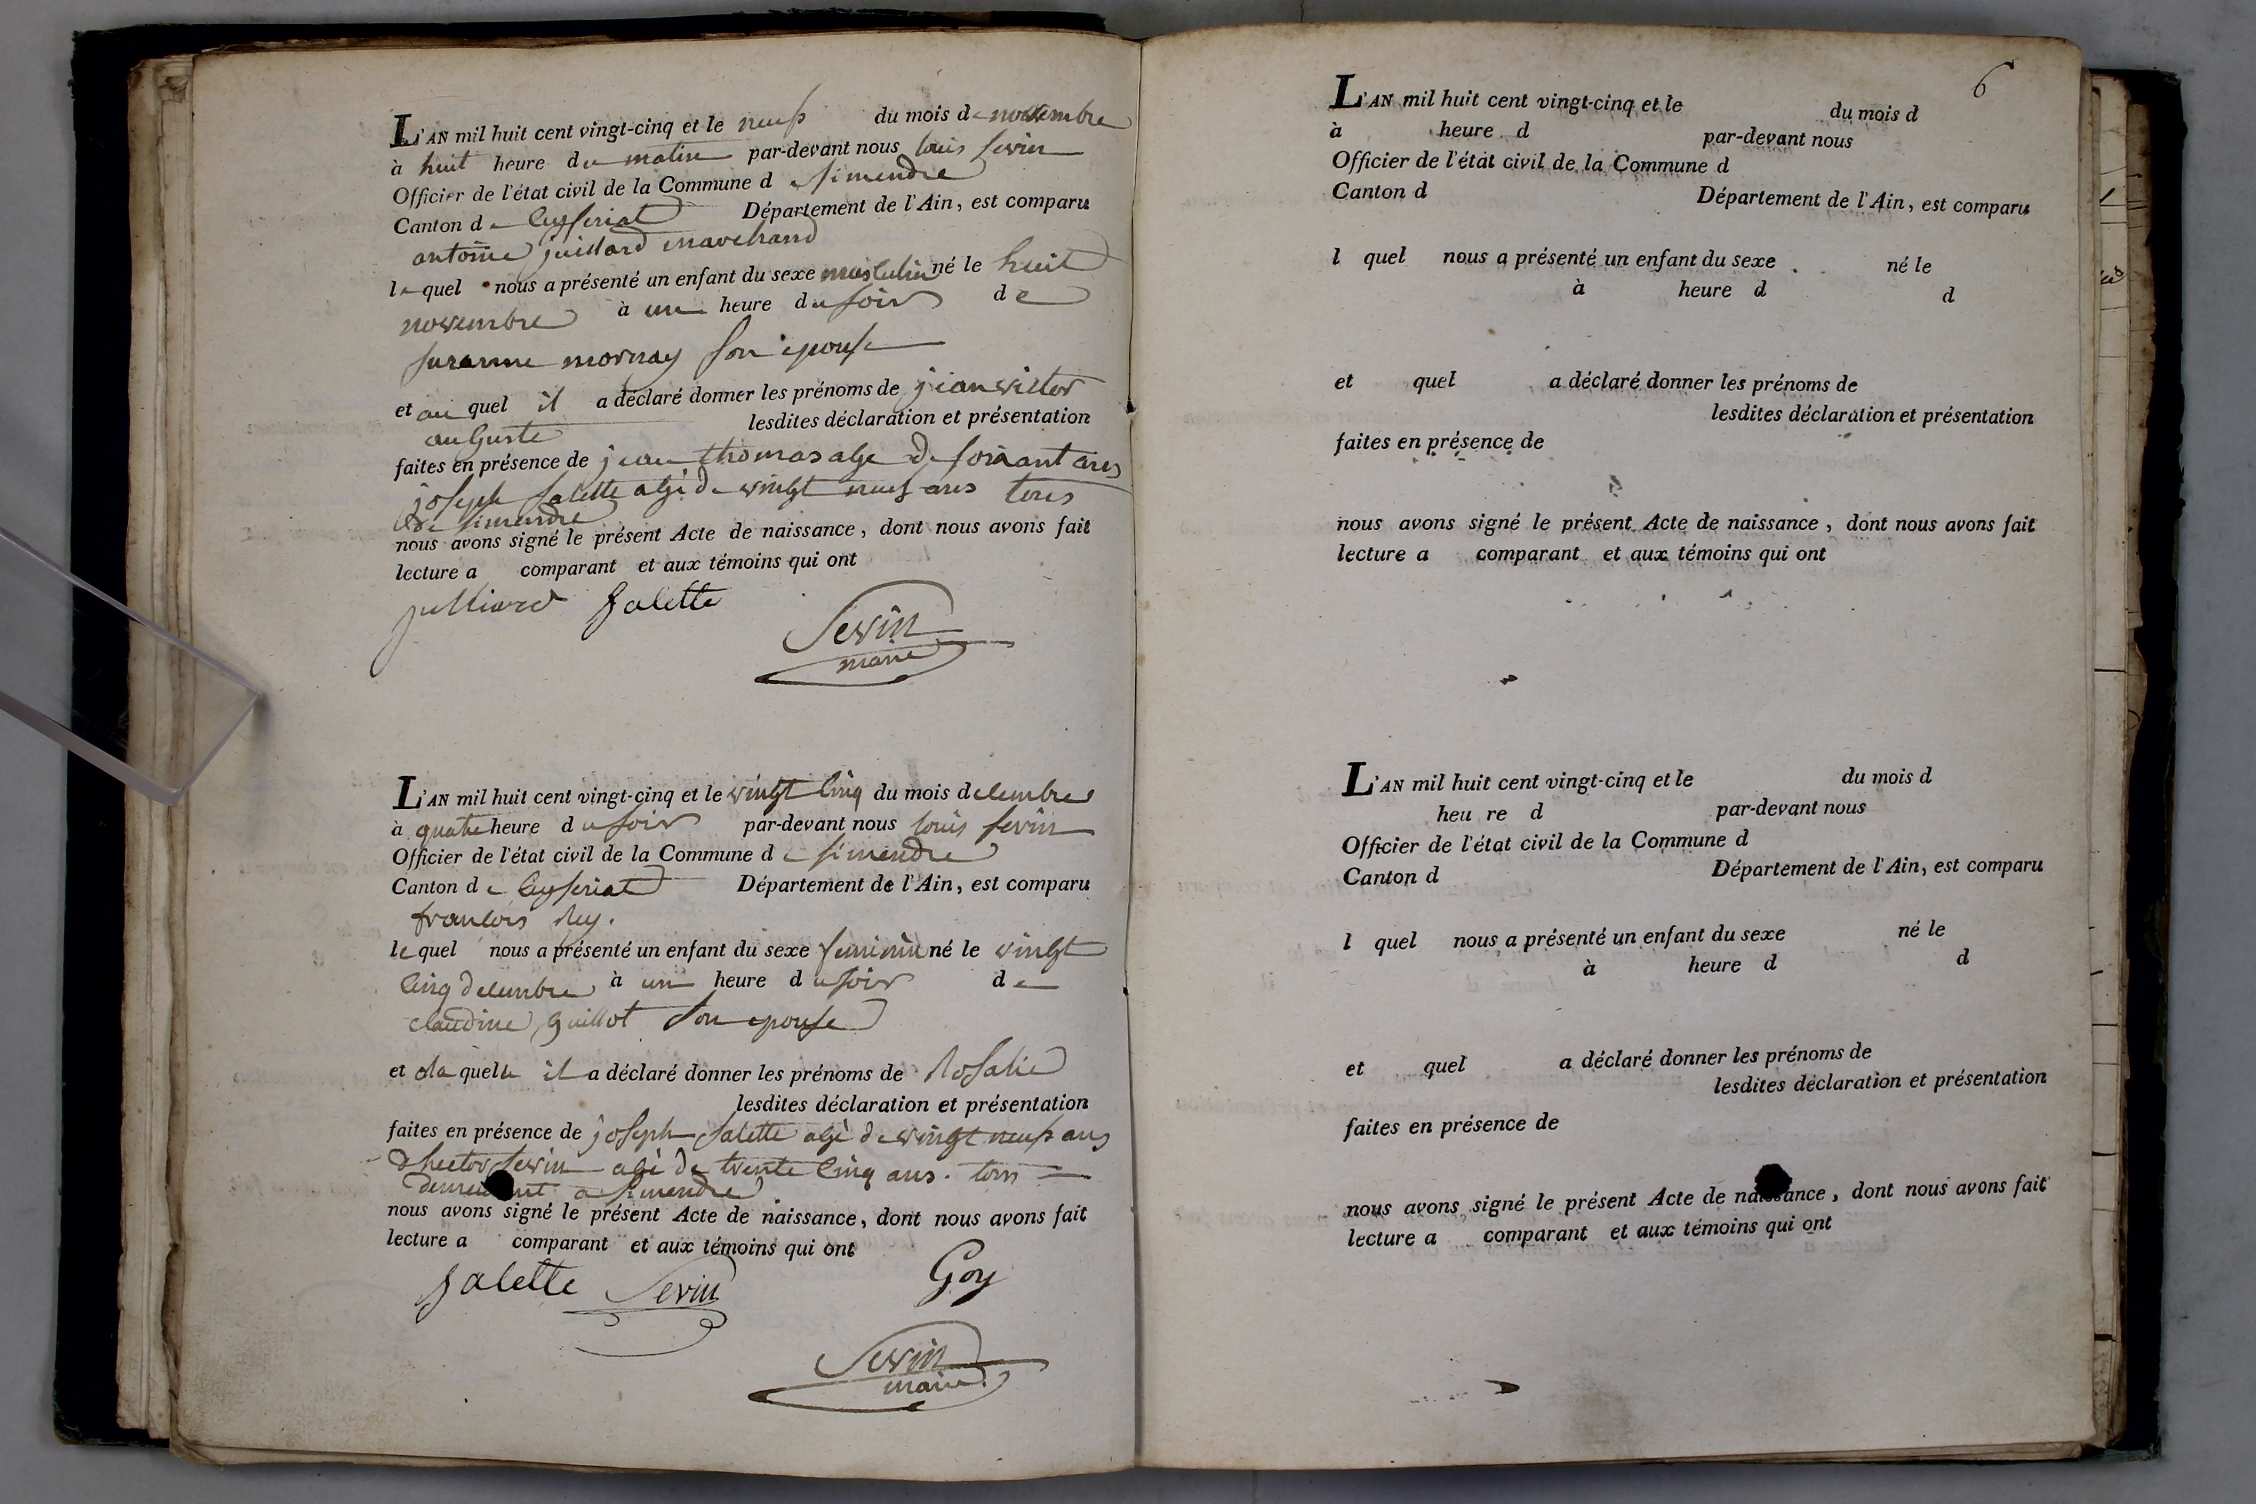 L'AN mil huit cent vingt-cinq et le neuf du mois de novembre
à huit heure du matin par-devant nous louis sevin
Officier de l'état civil de la Commune de simendre
Canton de Ceyseriat Département de l'Ain, est comparu
antoine juillard marchand
le quel nous a présenté un enfant du sexe masculin né le huit
novembre à une heure du soir de
susanne mornay son epouse
et au quel il a déclaré donner les prénoms de jean victor
auguste lesdites déclaration et présentation
faites en présence de jean thomas age de soixant ans
joseph salette agé de vingt neuf ans tous
de simendre
nous avons signé le présent Acte de naissance, dont nous avons fait
lecture a comparant et aux témoins qui ont
Julliard Salette
Sevin
maire
L'AN mil huit cent vingt-cinq et le vingt cinq du mois decembre
à quatre heure du soir par-devant nous louis sevin
Officier de l'état civil de la Commune de simendre
Canton de Ceyseriat Département de l'Ain, est comparu
francois Rey.
le quel nous a présenté un enfant du sexe feminin né le vingt
cinq decembre à une heure du soir de
claudine guillot son epouse
et a la quelle il a déclaré donner les prénoms de Rosalie
lesdites déclaration et présentation
faites en présence de joseph salette agé de vingt neuf ans
d'hector sevin agé de trente cinq ans. tous
a simendre
nous avons signé le présent Acte de naissance, dont nous avons fait
lecture a comparant et aux témoins qui ont
Salette Sevin Goy
Sevin
maire
6
L'AN mil huit cent vingt-cinq et le du mois d
à heure d par-devant nous
Officier de l'état civil de la Commune d
Canton d Département de l'Ain, est comparu
l quel nous a présenté un enfant du sexe né le
à heure d d
et quel a déclaré donner les prénoms de
lesdites déclaration et présentation
faites en présence de
nous avons signé le présent Acte de naissance, dont nous avons fait
lecture a comparant et aux témoins qui ont
L'AN mil huit cent vingt-cinq et le du mois d
heu re d par-devant nous
Officier de l'état civil de la Commune d
Canton d Département de l'Ain, est comparu
l quel nous a présenté un enfant du sexe né le
à heure d d
et quel a déclaré donner les prénoms de
lesdites déclaration et présentation
faites en présence de
nous avons signé le présent Acte de naissance, dont nous avons fait
lecture a comparant et aux témoins qui ont